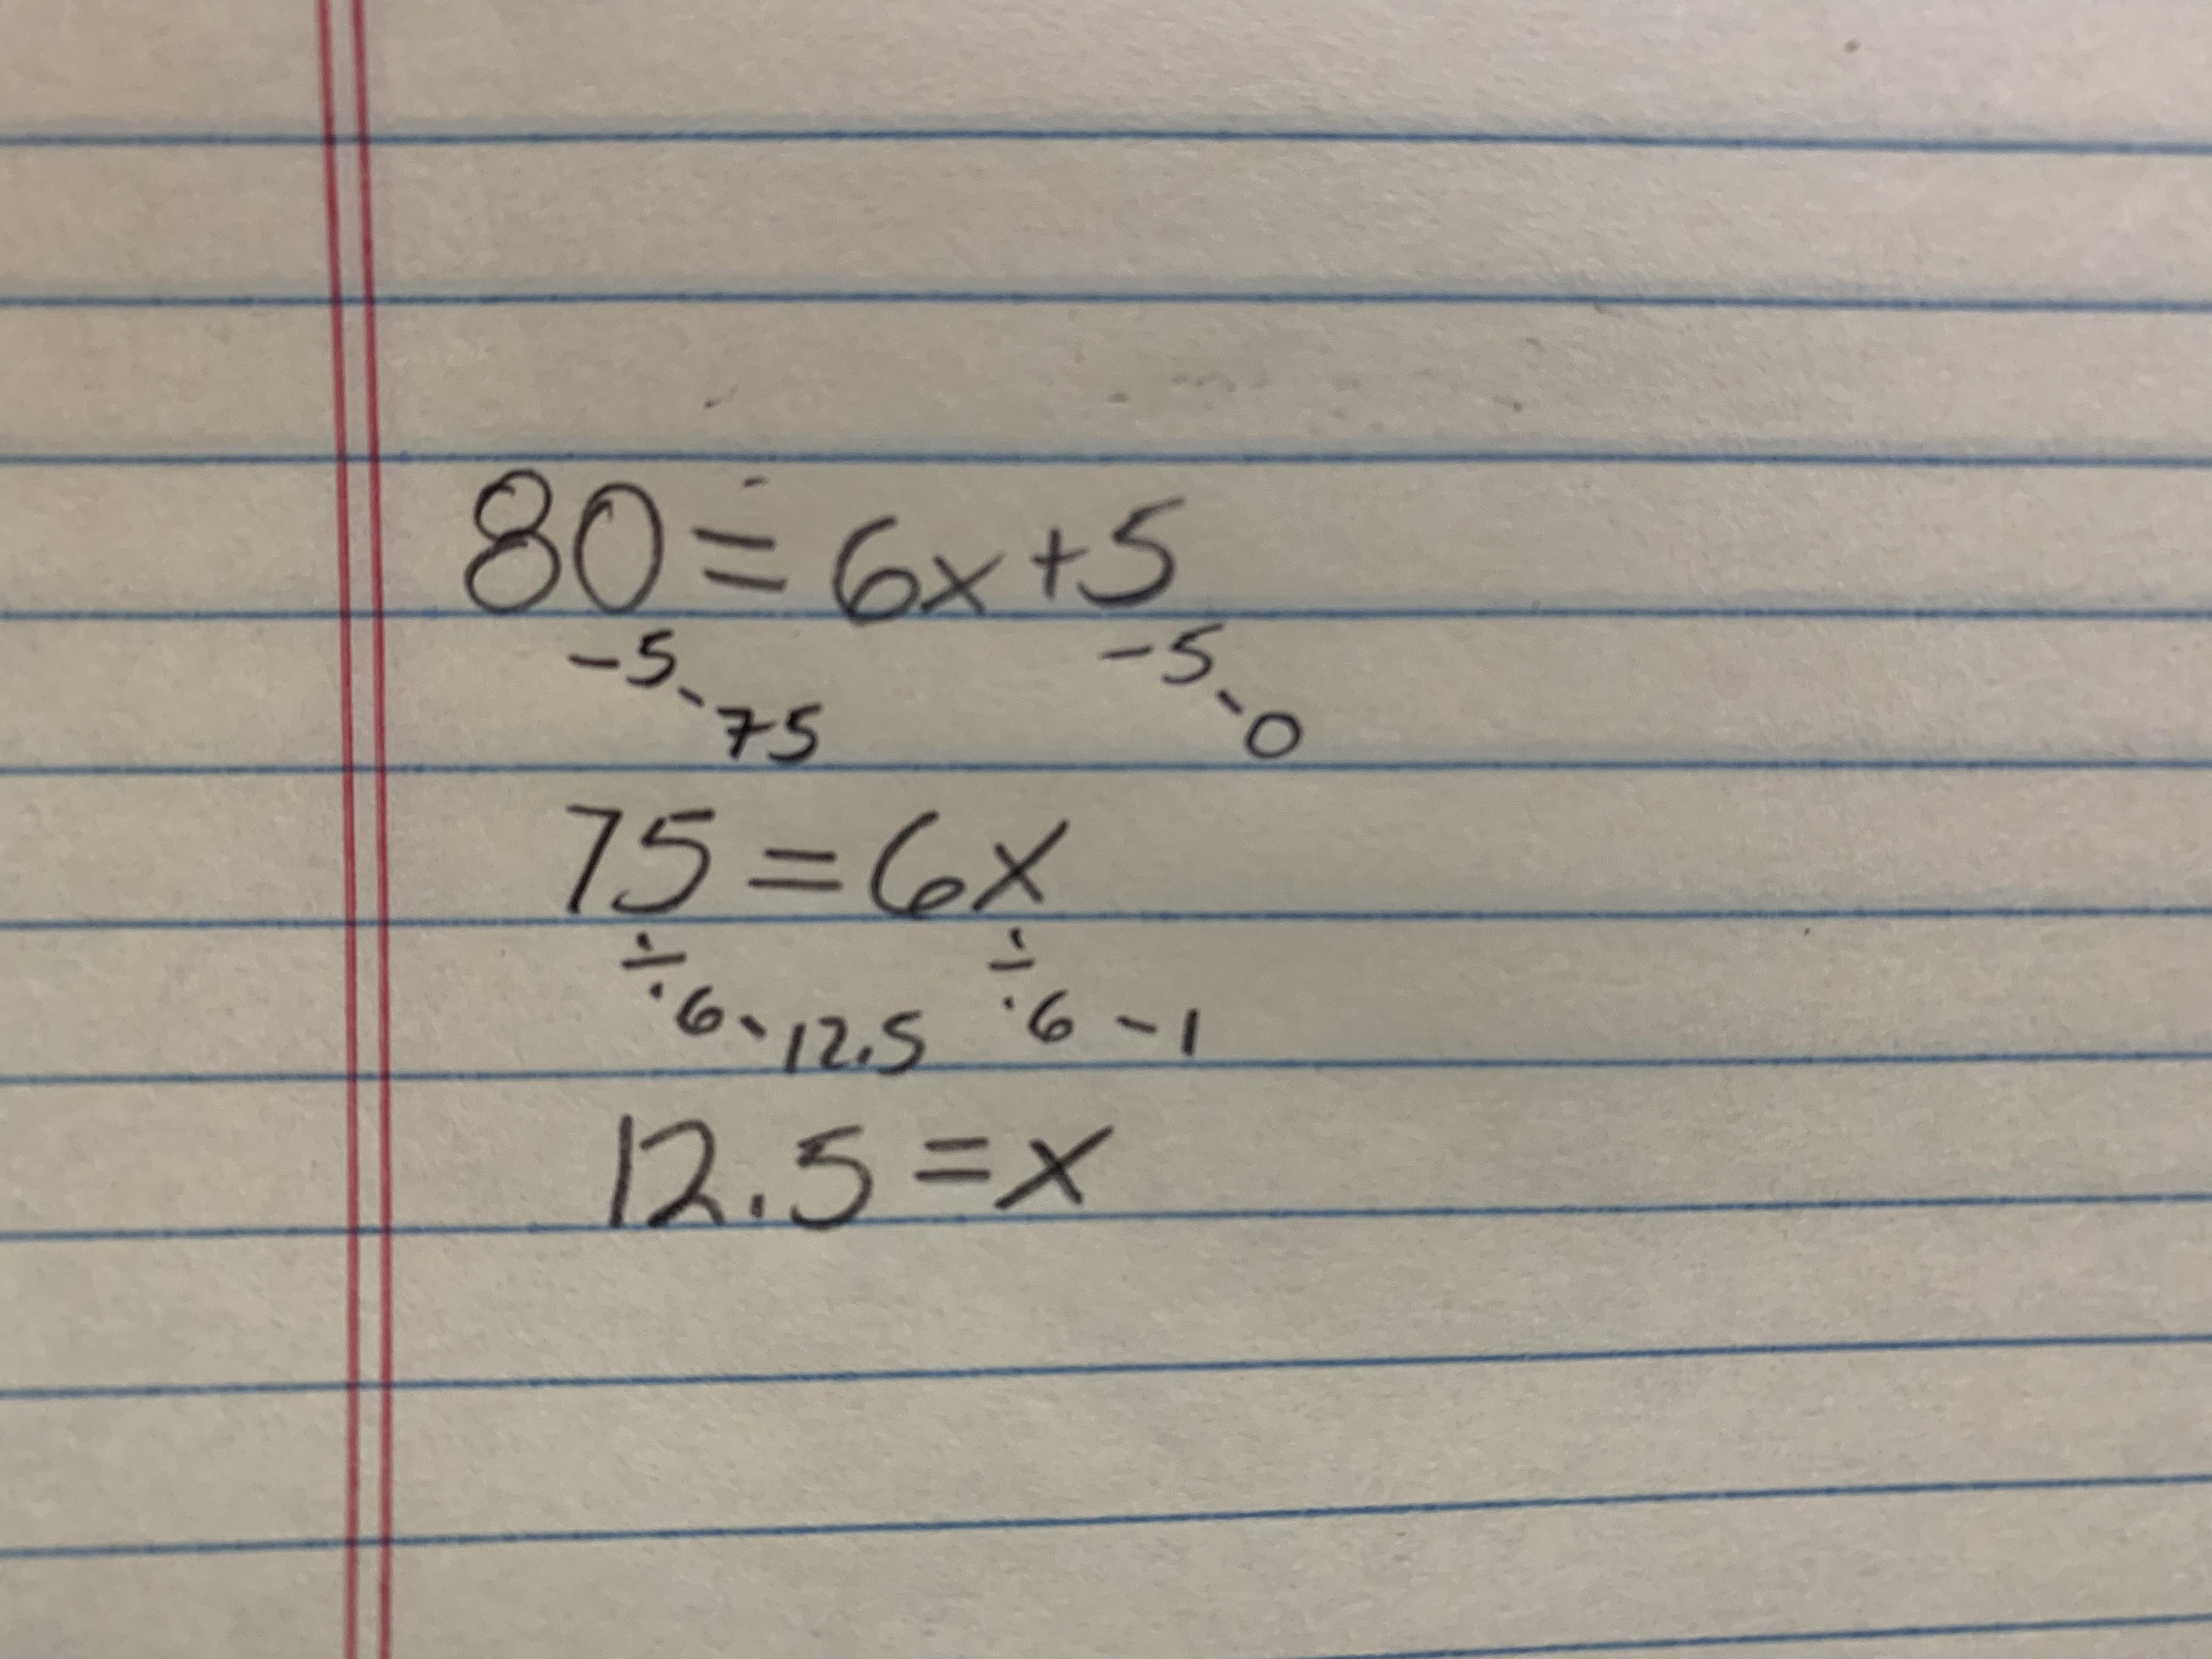 80 = 6x + 5
-5 - 75 -5 - 0
75 = 6x
÷6 - 12.5 ÷6 - 1
12.5 = x